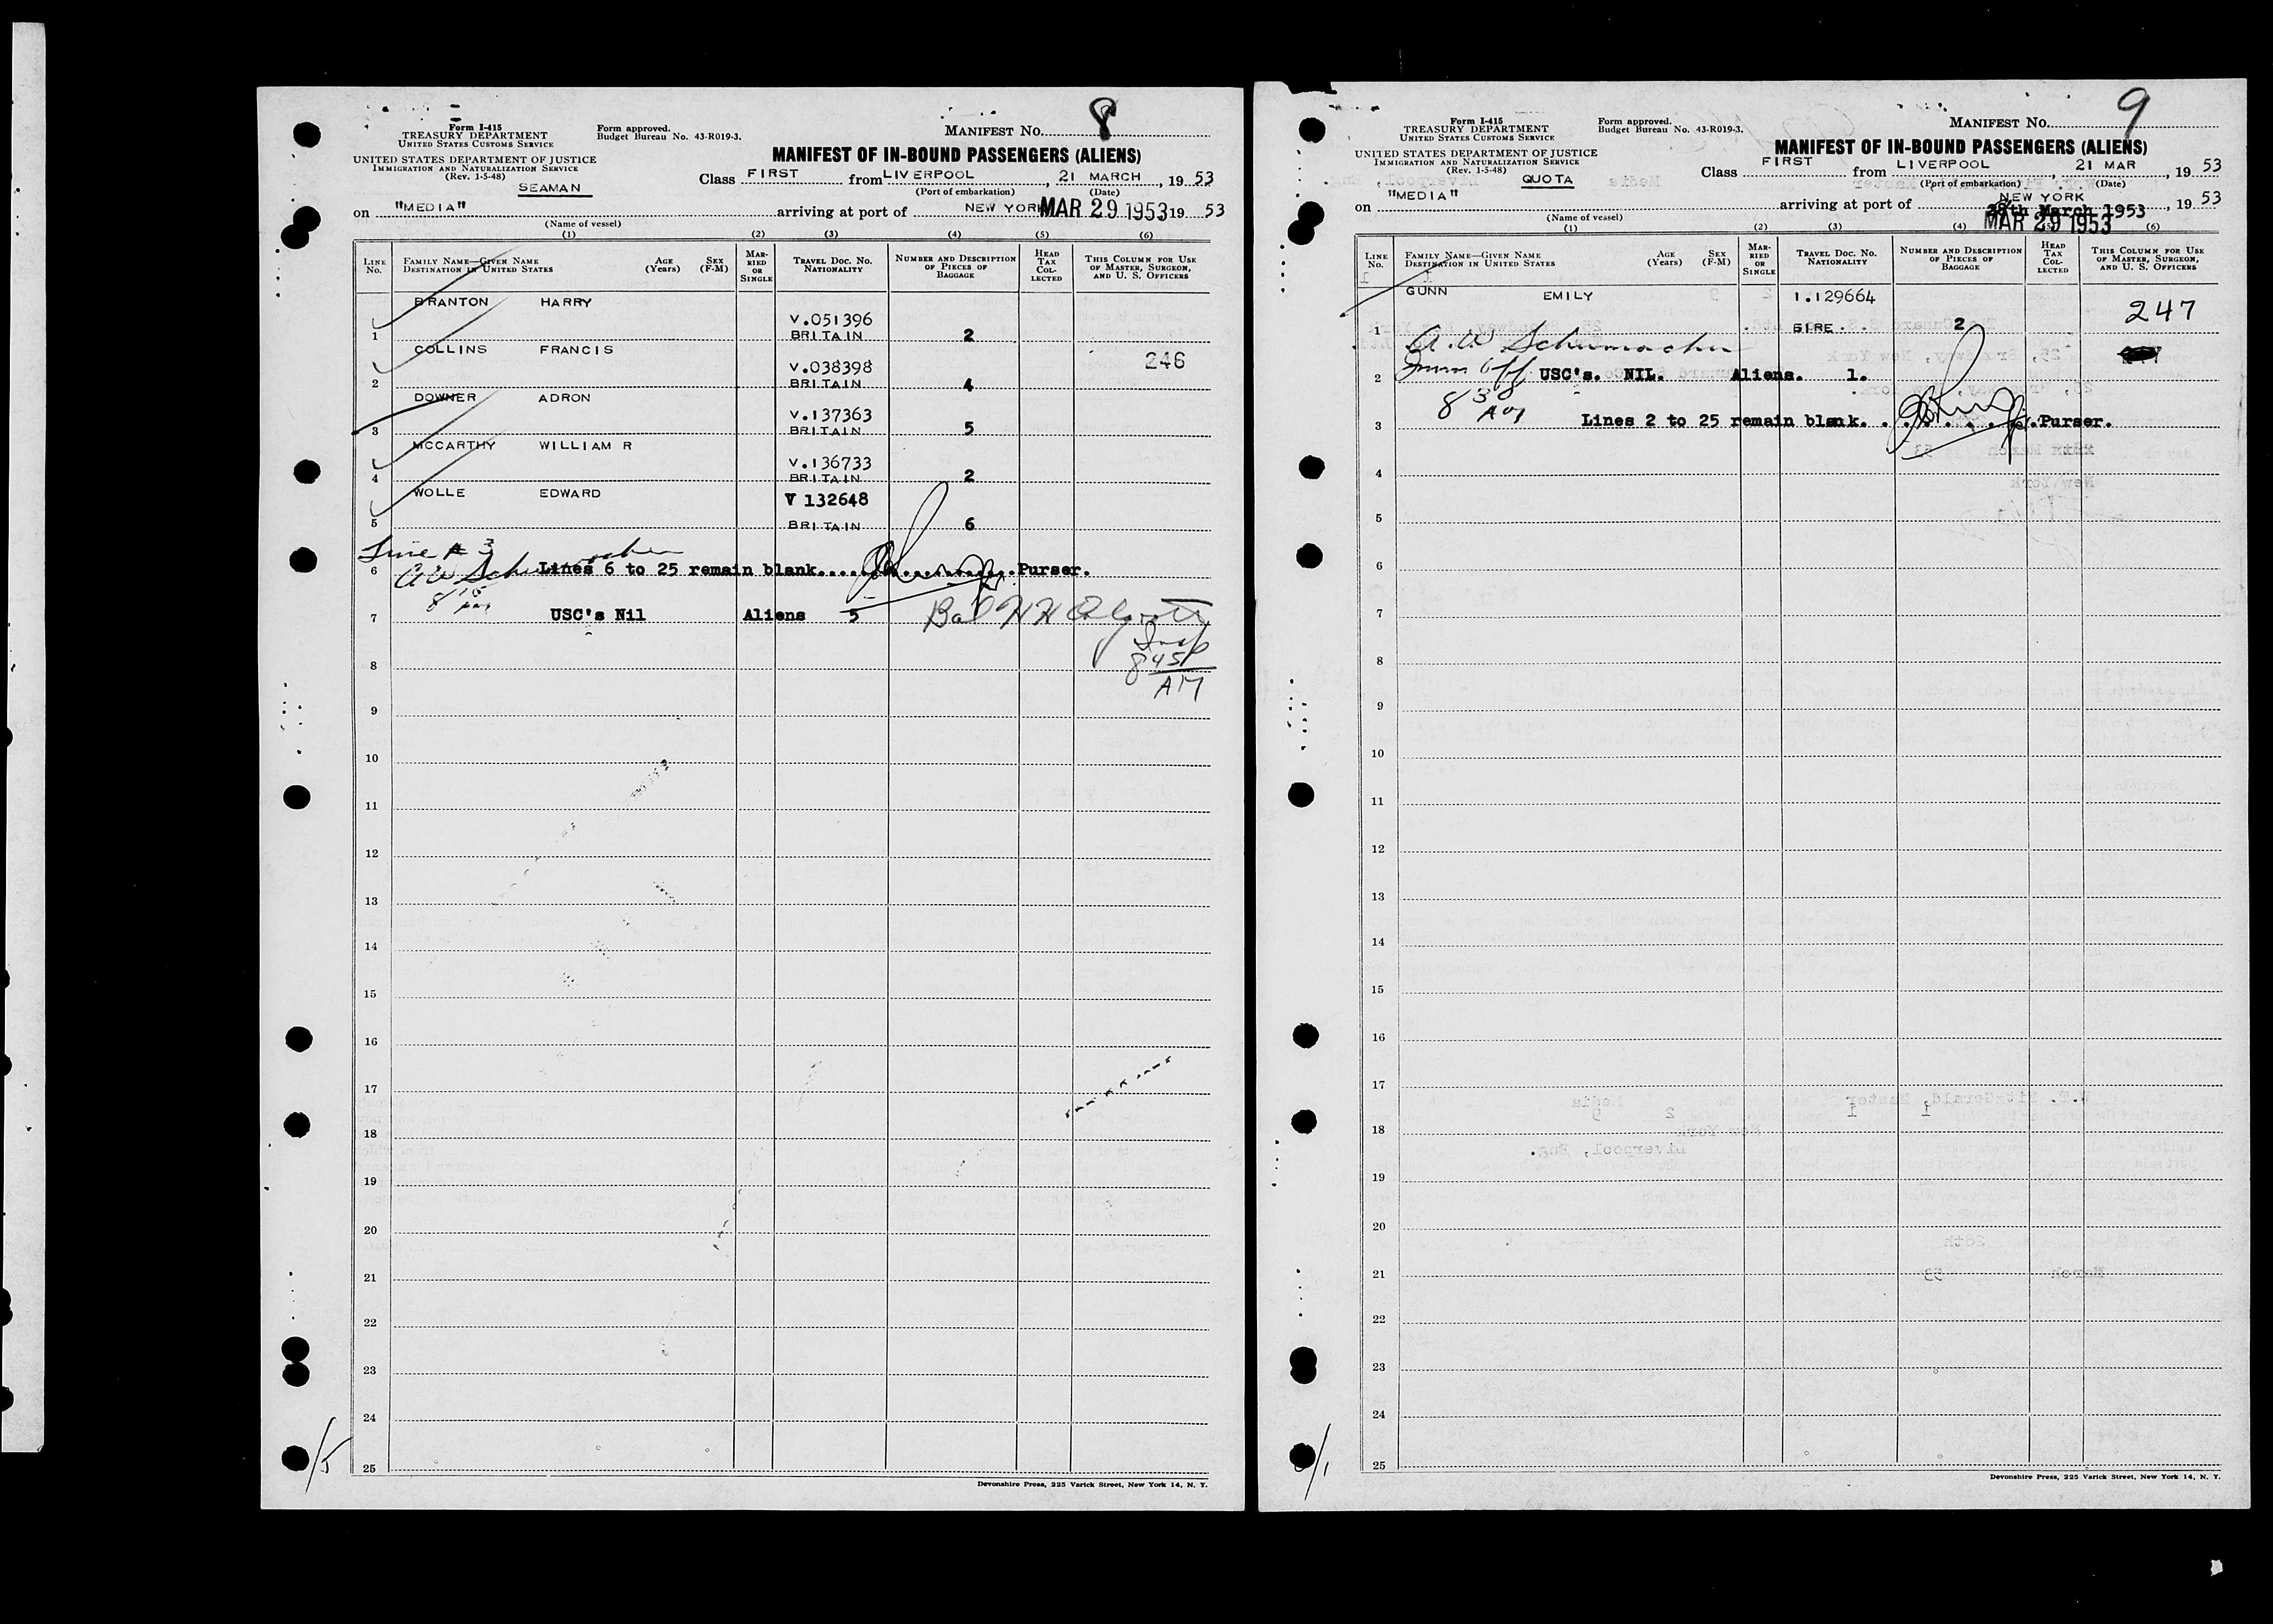 Form I-415
TREASURY DEPARTMENT
UNITED STATES CUSTOMS SERVICE
UNITED STATES DEPARTMENT OF JUSTICE
IMMIGRATION AND NATURALIZATION SERVICE
(Rev. 1-5-48)
SEAMAN
Form approved.
Budget Bureau No. 43-R019-3.
MANIFEST No. 8
MANIFEST OF IN-BOUND PASSENGERS (ALIENS)
Class FIRST from LIVERPOOL, 21 MARCH, 19 53
(Port of embarkation) (Date)
on "MEDIA" arriving at port of NEW YORK MAR 29 1953 19 53
(Name of vessel)
(1) (2) (3) (4) (5) (6)
LINE No. FAMILY NAME—GIVEN NAME DESTINATION IN UNITED STATES AGE (Years) SEX (F-M) MARRIED OR SINGLE TRAVEL DOC. NO. NATIONALITY NUMBER AND DESCRIPTION OF PIECES OF BAGGAGE HEAD TAX COLLECTED THIS COLUMN FOR USE OF MASTER, SURGEON, AND U. S. OFFICERS
BRANTON HARRY V.051396
1 BRITAIN 2
COLLINS FRANCIS V.038398 246
2 BRITAIN 4
DOWNER ADRON V.137363
3 BRITAIN 5
MCCARTHY WILLIAM R V.136733
4 BRITAIN 2
WOLLE EDWARD V 132648
5 BRITAIN 6
Line # 3
A W Schumacher
6 Lines 6 to 25 remain blank. Purser.
7 USC's Nil Aliens 5
Insp
8 45
AM
8
9
10
11
12
13
14
15
16
17
18
19
20
21
22
23
24
25
/5
Devonshire Press, 225 Varick Street, New York 14, N. Y.
Form I-415
TREASURY DEPARTMENT
UNITED STATES CUSTOMS SERVICE
UNITED STATES DEPARTMENT OF JUSTICE
IMMIGRATION AND NATURALIZATION SERVICE
(Rev. 1-5-48)
QUOTA
Form approved.
Budget Bureau No. 43-R019-3.
MANIFEST No. 9
MANIFEST OF IN-BOUND PASSENGERS (ALIENS)
Class FIRST from LIVERPOOL, 21 MAR, 19 53
(Port of embarkation) (Date)
on "MEDIA" arriving at port of NEW YORK, 19 53
March 1953
MAR 29 1953
(Name of vessel)
(1) (2) (3) (4) (6)
LINE No. FAMILY NAME—GIVEN NAME DESTINATION IN UNITED STATES AGE (Years) SEX (F-M) MARRIED OR SINGLE TRAVEL DOC. NO. NATIONALITY NUMBER AND DESCRIPTION OF PIECES OF BAGGAGE HEAD TAX COLLECTED THIS COLUMN FOR USE OF MASTER, SURGEON, AND U. S. OFFICERS
GUNN EMILY 1.129664 247
1 EIRE 2
A. W Schumacher
Imm Off
2 USC's. NIL. Aliens. 1.
8 30 AM
3 Lines 2 to 25 remain blank. Purser.
4
5
6
7
8
9
10
11
12
13
14
15
16
17
18
19
20
21
22
23
24
25
/1
Devonshire Press, 225 Varick Street, New York 14, N. Y.